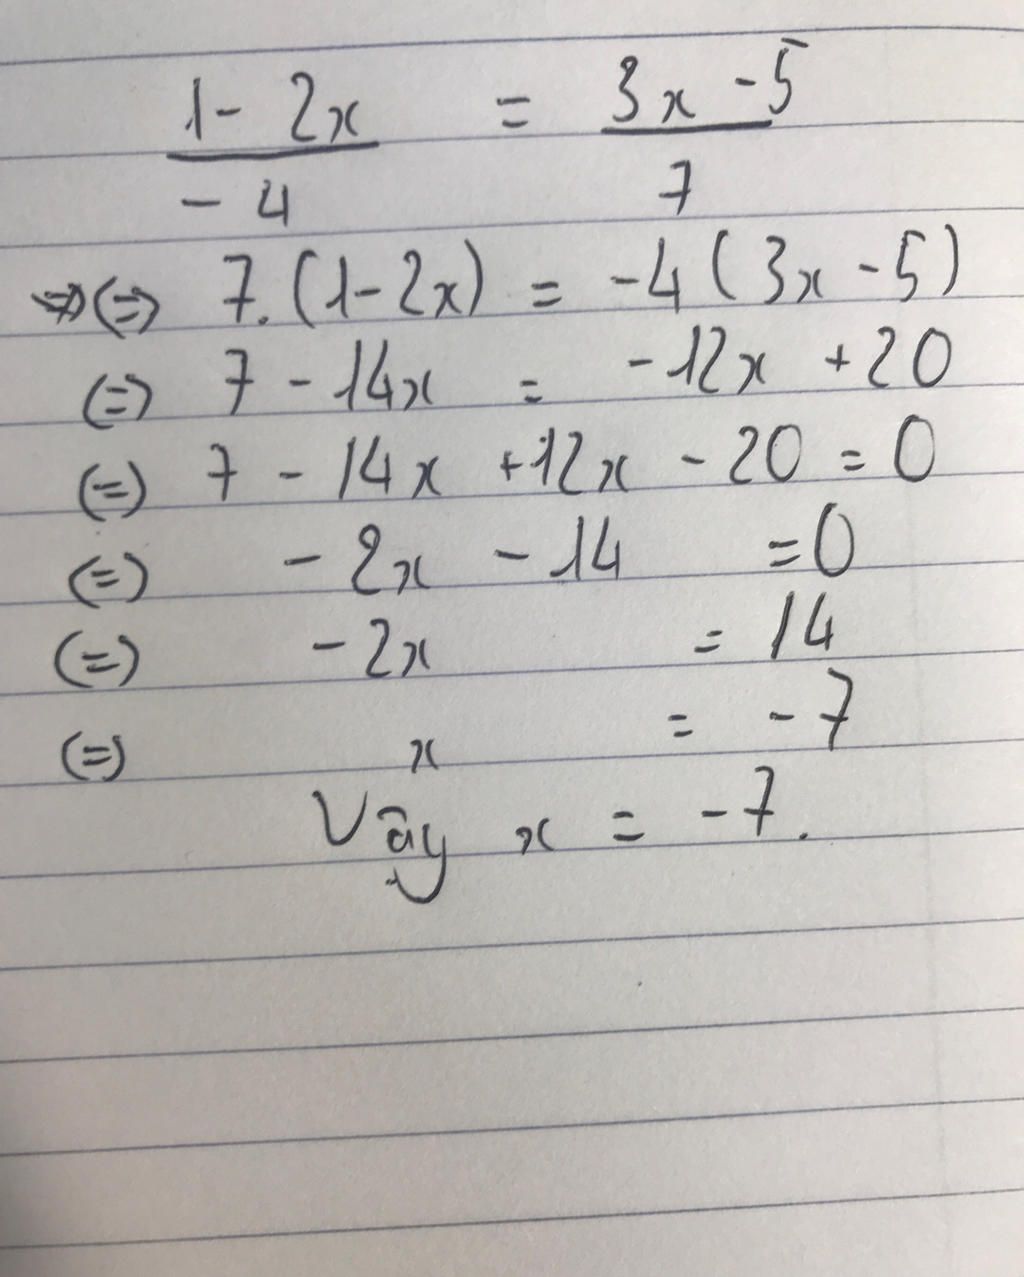 1 - 2x / -4 = 3x - 5 / 7
(=) 7.(1-2x) = -4(3x-5)
(=) 7 - 14x = -12x + 20
(=) 7 - 14x +12x - 20 = 0
(=) -2x - 14 = 0
(=) -2x = 14
(=) x = -7
Vậy x = -7.